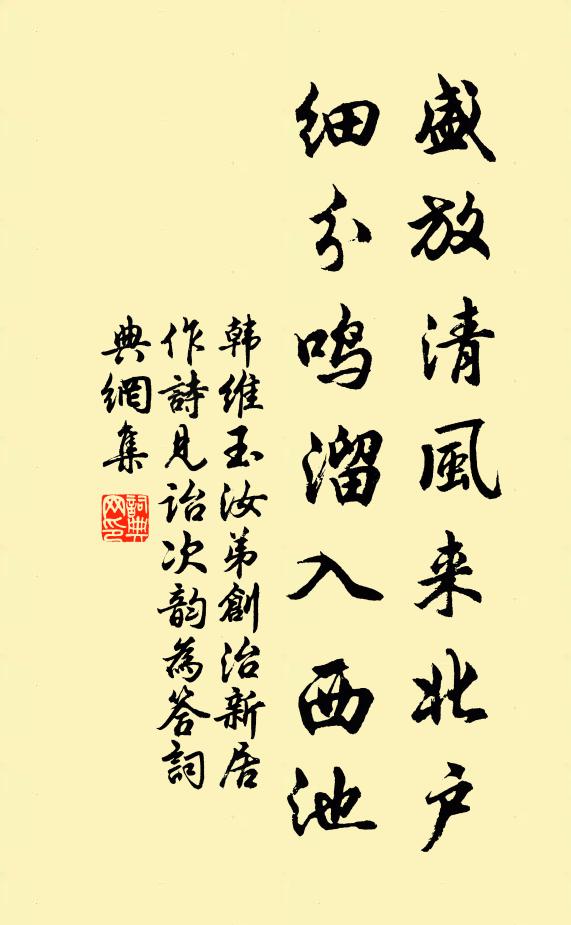 盛放清風来北户
细分鸣溜入西池
韩维玉汝弟創治新居
作詩見诒次韵為答詞
典網集
詞典网印